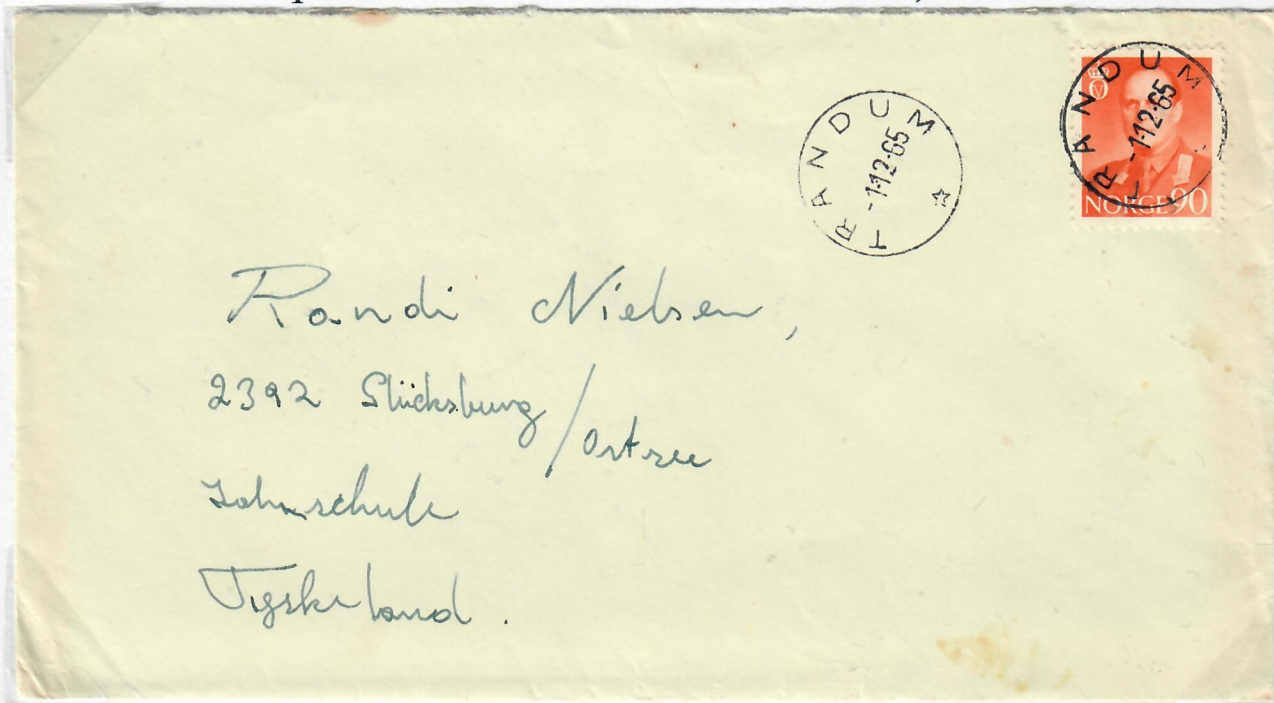 TRANDUM
-1.12.65
TRANDUM
-1.12.65
NORGE 90
Randi Nielsen,
2392 Glücksburg / Ostsee
Tyskeland.